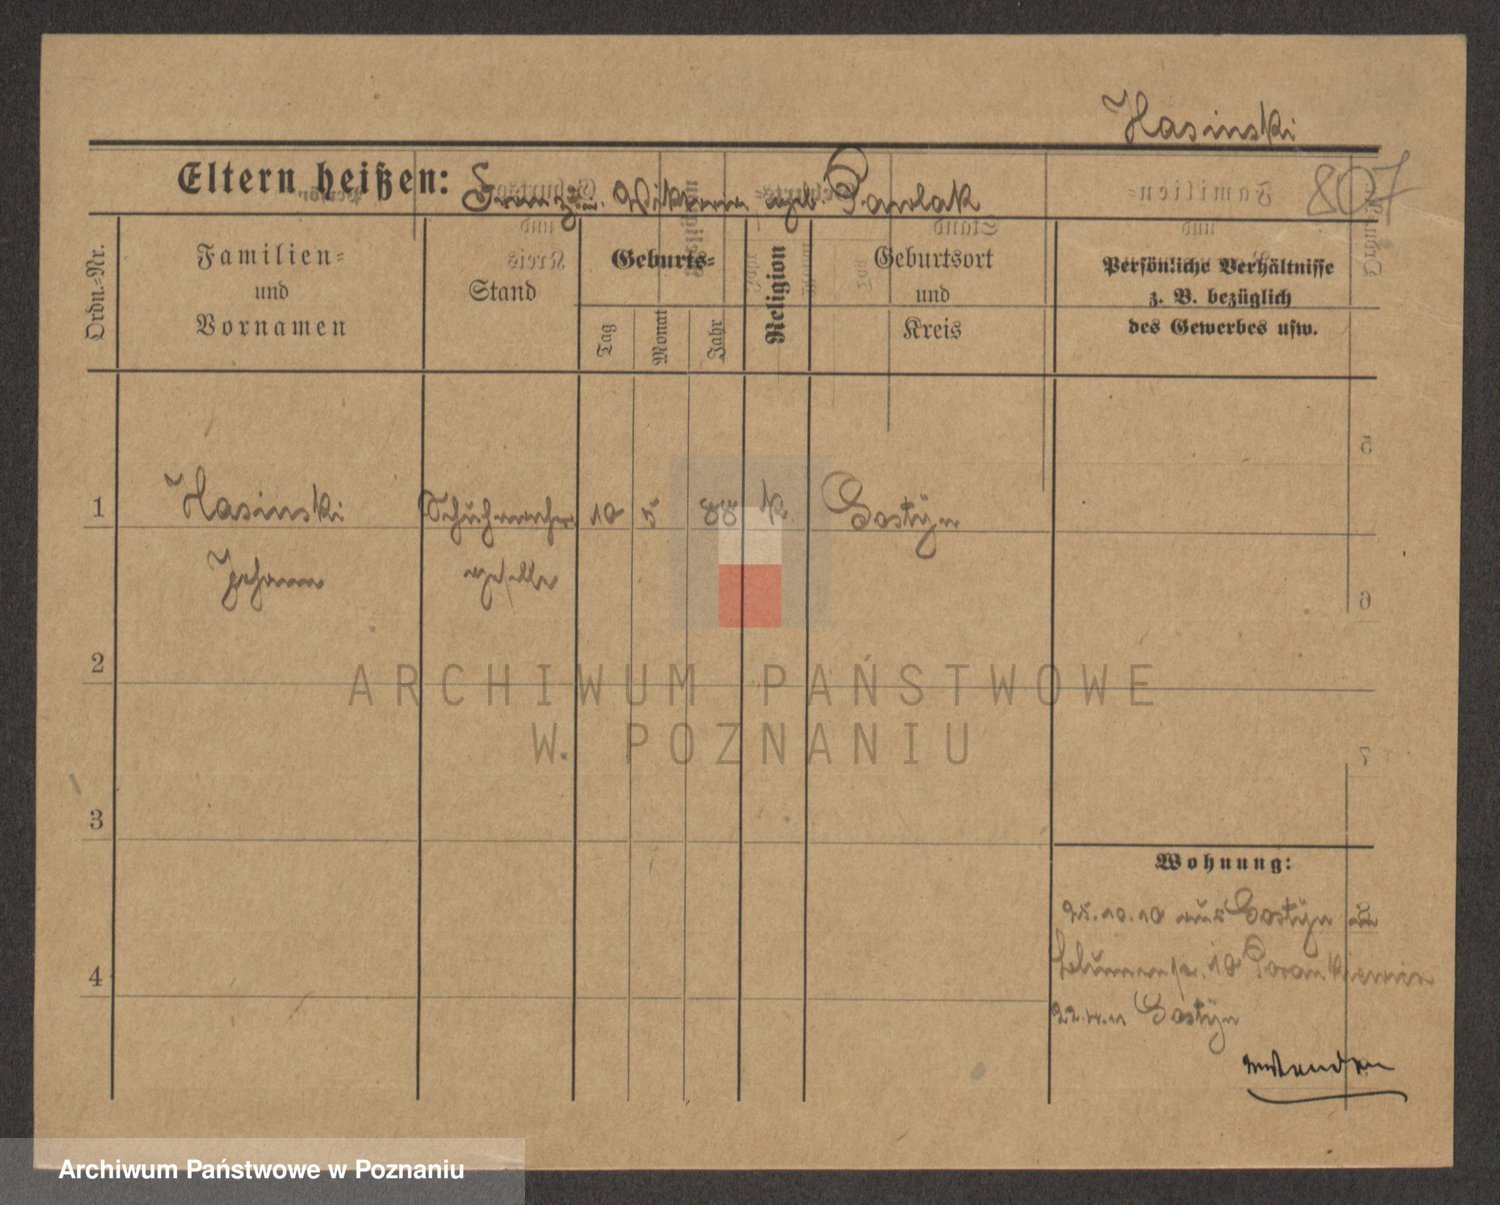 Hasinski
807
Eltern heißen: Franz u. Viktoria geb. Pawlak
Ordn.-Nr.
Familien=
und
Vornamen
Stand
Geburts=
Tag
Monat
Jahr
Religion
Geburtsort
und
Kreis
Persönliche Verhältnisse
z. B. bezüglich
des Gewerbes usw.
1 Hasinski Schuhmacher 10 5 88 k. Gostyn
Johann geselle
2
ARCHIWUM PAŃSTWOWE
W POZNANIU
3
Wohnung:
25.10.10 aus Gostyn
18
4
22.4.11 Gostyn
Archiwum Państwowe w Poznaniu